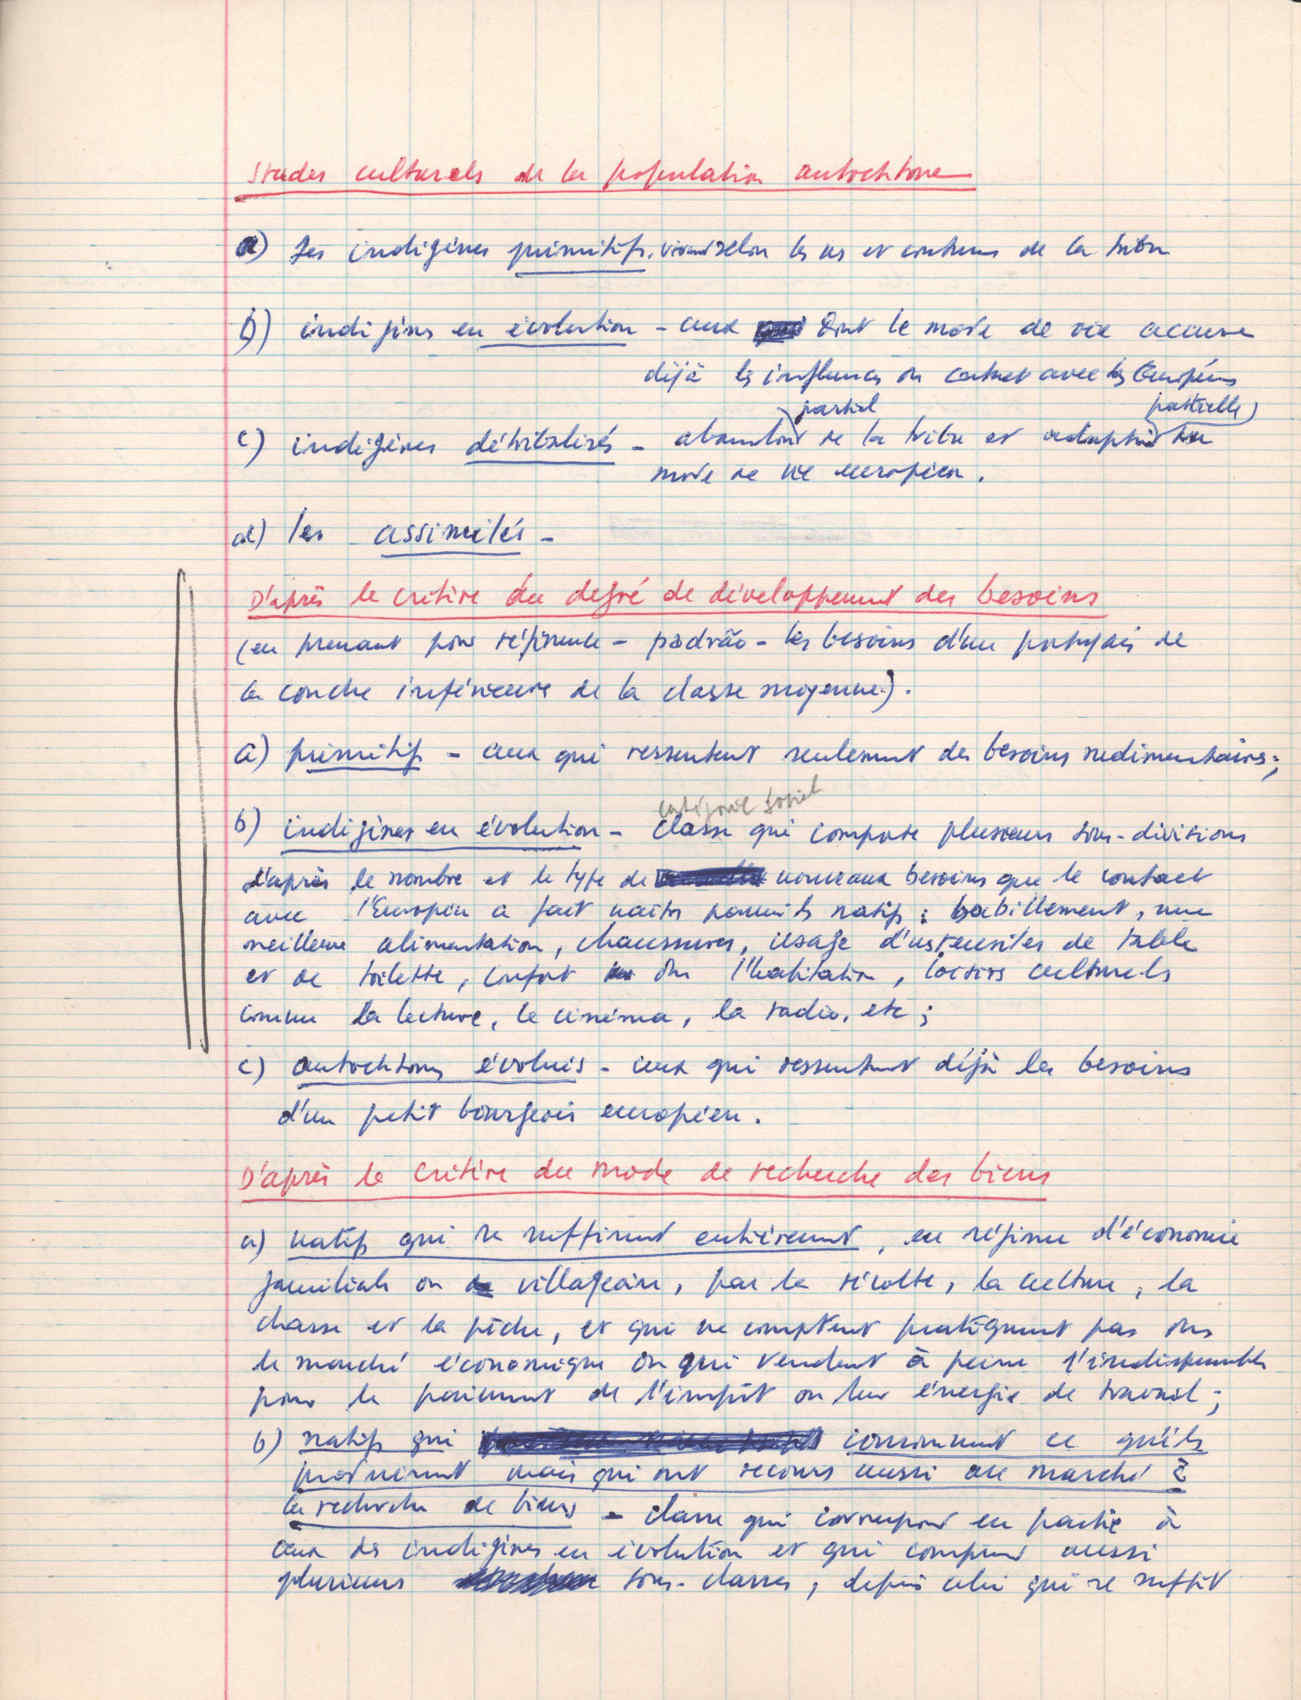 Stades culturels de la population autochtone
a) Les indigènes primitifs, vivant selon les us et coutumes de la tribu
b) indigènes en évolution - ceux dont le mode de vie accuse
déjà les influences du contact avec les Européens
partiel partielle)
c) indigènes détribalisés - abandon de la tribu et adoption du
mode de vie européen.
d) les assimilés -
D'après le critère du degré de développement des besoins
(en prenant pour référence - padrão - les besoins d'un portugais de
la couche inférieure de la classe moyenne).
a) primitifs - ceux qui ressentent seulement des besoins rudimentaires;
catégorie social
b) indigènes en évolution - classe qui comporte plusieurs sous-divisions
d'après le nombre et le type de nouveaux besoins que le contact
avec l'Européen a fait naître parmi les natifs: habillement, une
meilleure alimentation, chaussures, usage d'ustensiles de table
et de toilette, confort dans l'habitation, loisirs culturels
comme la lecture, le cinéma, la radio, etc;
c) autochtones évolués - ceux qui ressentent déjà les besoins
d'un petit bourgeois européen.
D'après le critère du mode de recherche des biens
a) natifs qui se suffisent entièrement, en régime d'économie
familiale ou villageoise, par la récolte, la culture, la
chasse et la pêche, et qui ne comptent pratiquement pas dans
le marché économique ou qui vendent à peine l'indispensable
pour le paiement de l'impôt ou leur énergie de travail;
b) natifs qui consomment ce qu'ils
produisent mais qui ont recours aussi au marché à
la recherche de biens - classe qui correspond en partie à
ceux des indigènes en évolution et qui comprend aussi
plusieurs sous-classes, depuis celui qui se suffit